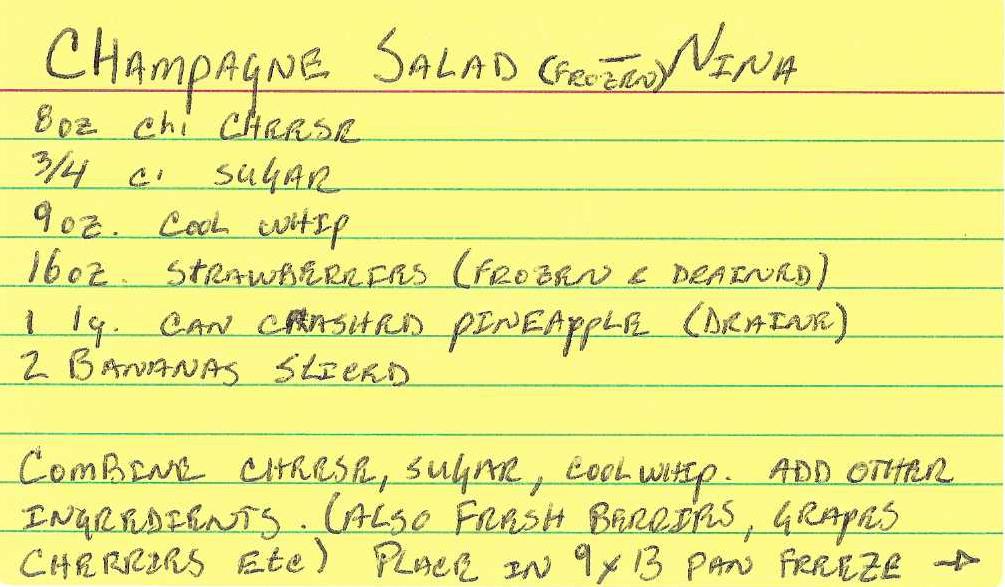 CHAMPAGNE SALAD (FROZEN) – NINA
8 oz chi CHEESE
3/4 c. SUGAR
9 oz. COOL WHIP
16 oz. STRAWBERRIES (FROZEN & DRAINED)
1 lg. CAN CRASHED PINEAPPLE (DRAINE)
2 BANANAS SLICED
COMBINE CHEESE, SUGAR, COOL WHIP. ADD OTHER
INGREDIENTS. (ALSO FRESH BERRIES, GRAPES
CHERRIES Etc) PLACE IN 9 x 13 PAN FREEZE →